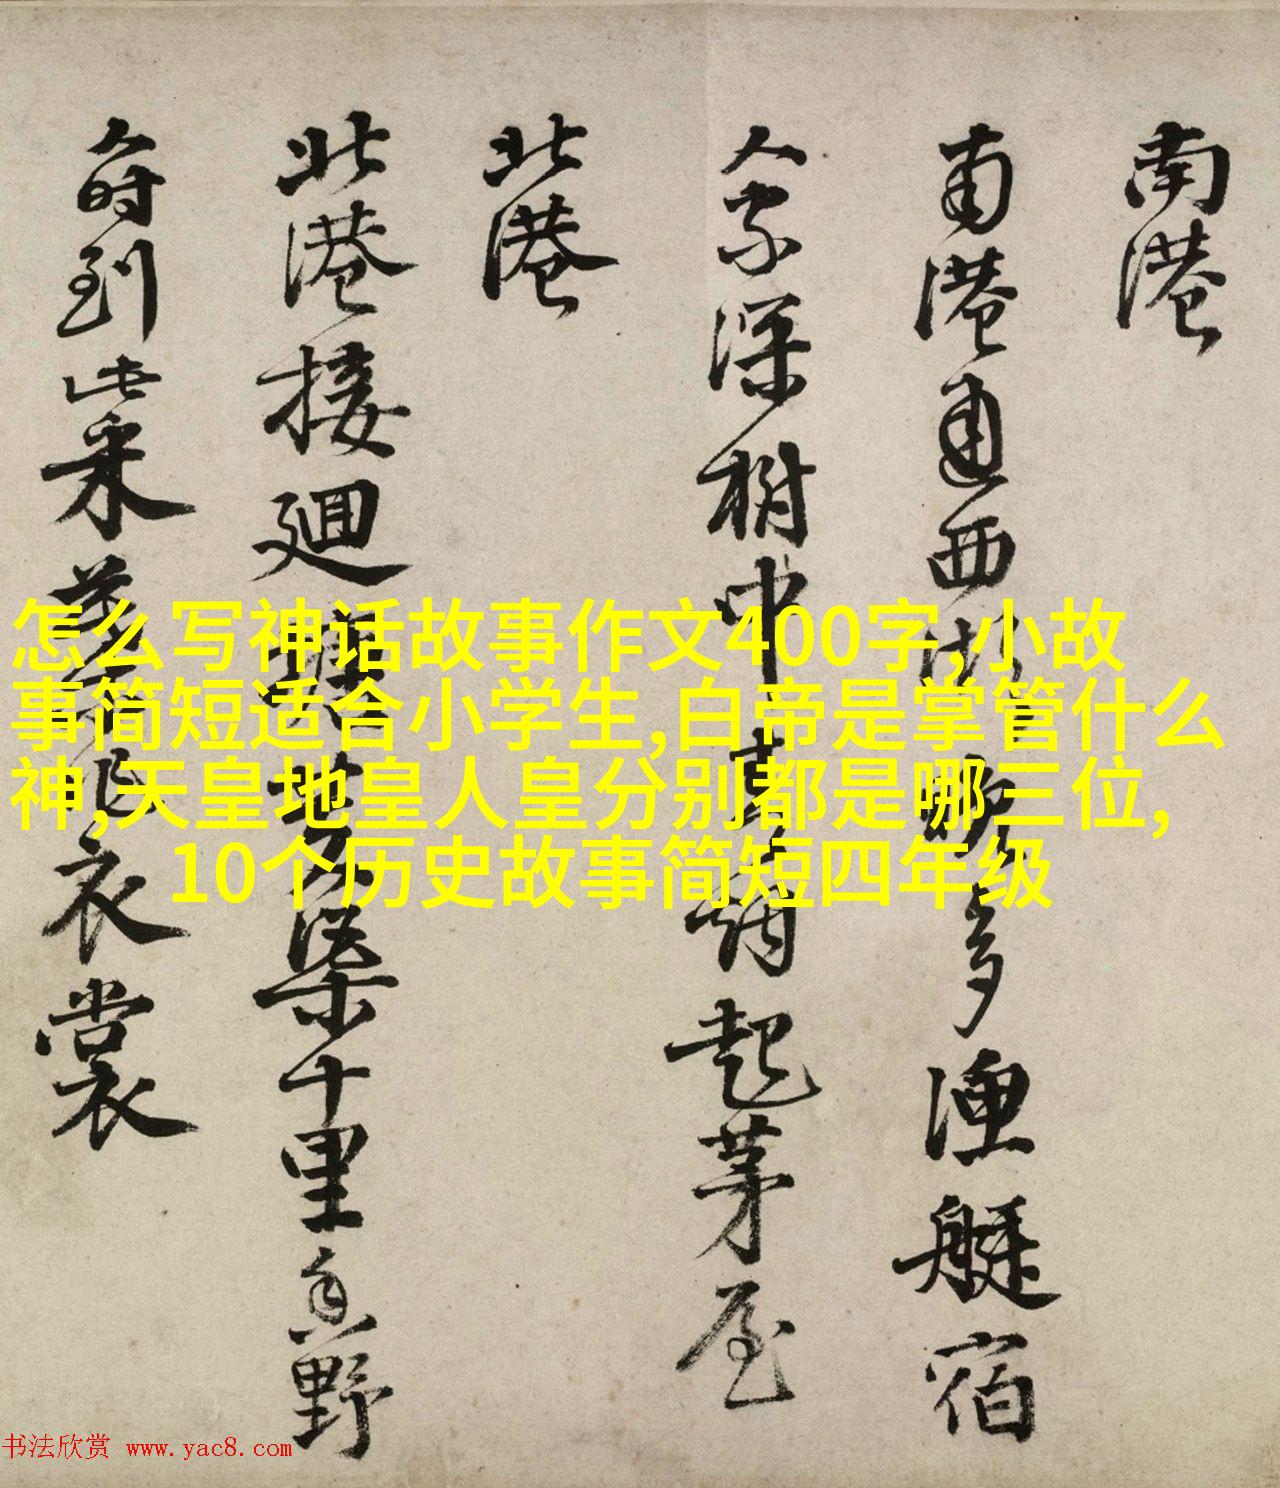 南港
南港通西湖晚多漁艇宿
人家深樹中起茅屋
北港
北港接廻渠十里香野
人時到此采作衣裳
怎么写神话故事作文400字,小故
事简短适合小学生,白帝是掌管什么
神,天皇地皇人皇分别都是哪三位,
10个历史故事简短四年级
书法欣赏 www.yac8.com